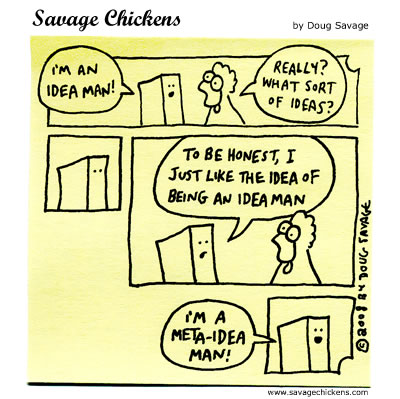 Savage Chickens
by Doug Savage
I'M AN
IDEA MAN!
REALLY?
WHAT SORT
OF IDEAS?
TO BE HONEST, I
JUST LIKE THE IDEA OF
BEING AN IDEA MAN
I'M A
META-IDEA
MAN!
©2008 BY DOUG SAVAGE
www.savagechickens.com